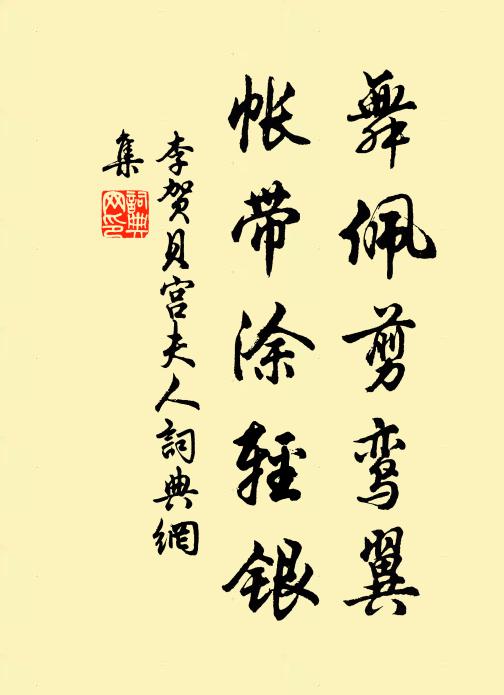 舞佩剪鸾翼
帐带涂輕银
李贺贝宫夫人詞典網
集
詞典
网印